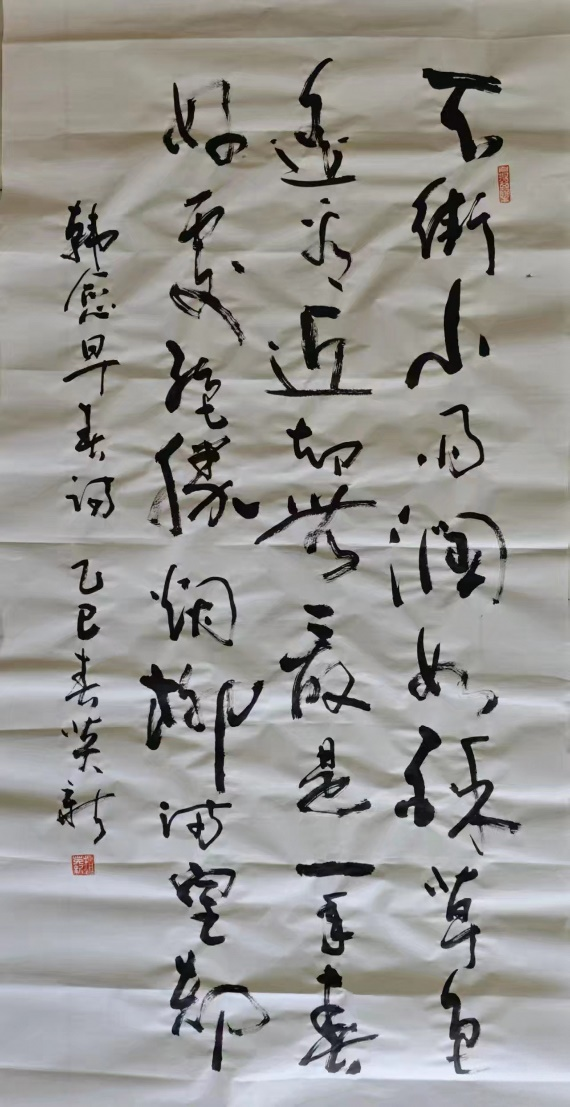 天街小雨潤如酥草色
遥看近却無最是一年春
好處絕勝烟柳滿皇都
韓愈早春詩 乙巳春